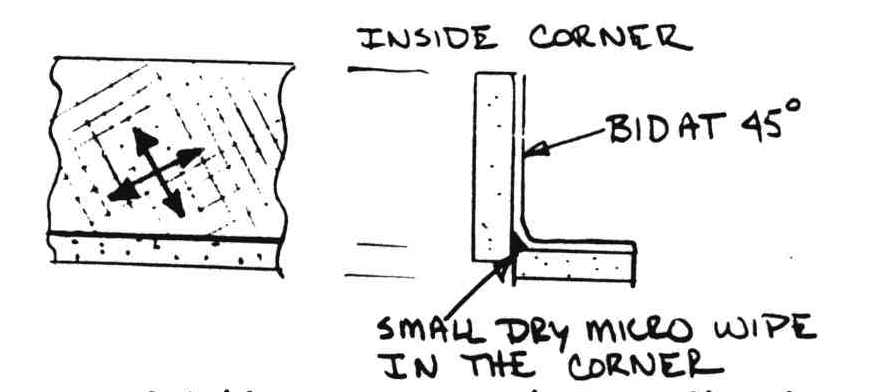 INSIDE CORNER
BID AT 45°
SMALL DRY MICRO WIPE
IN THE CORNER